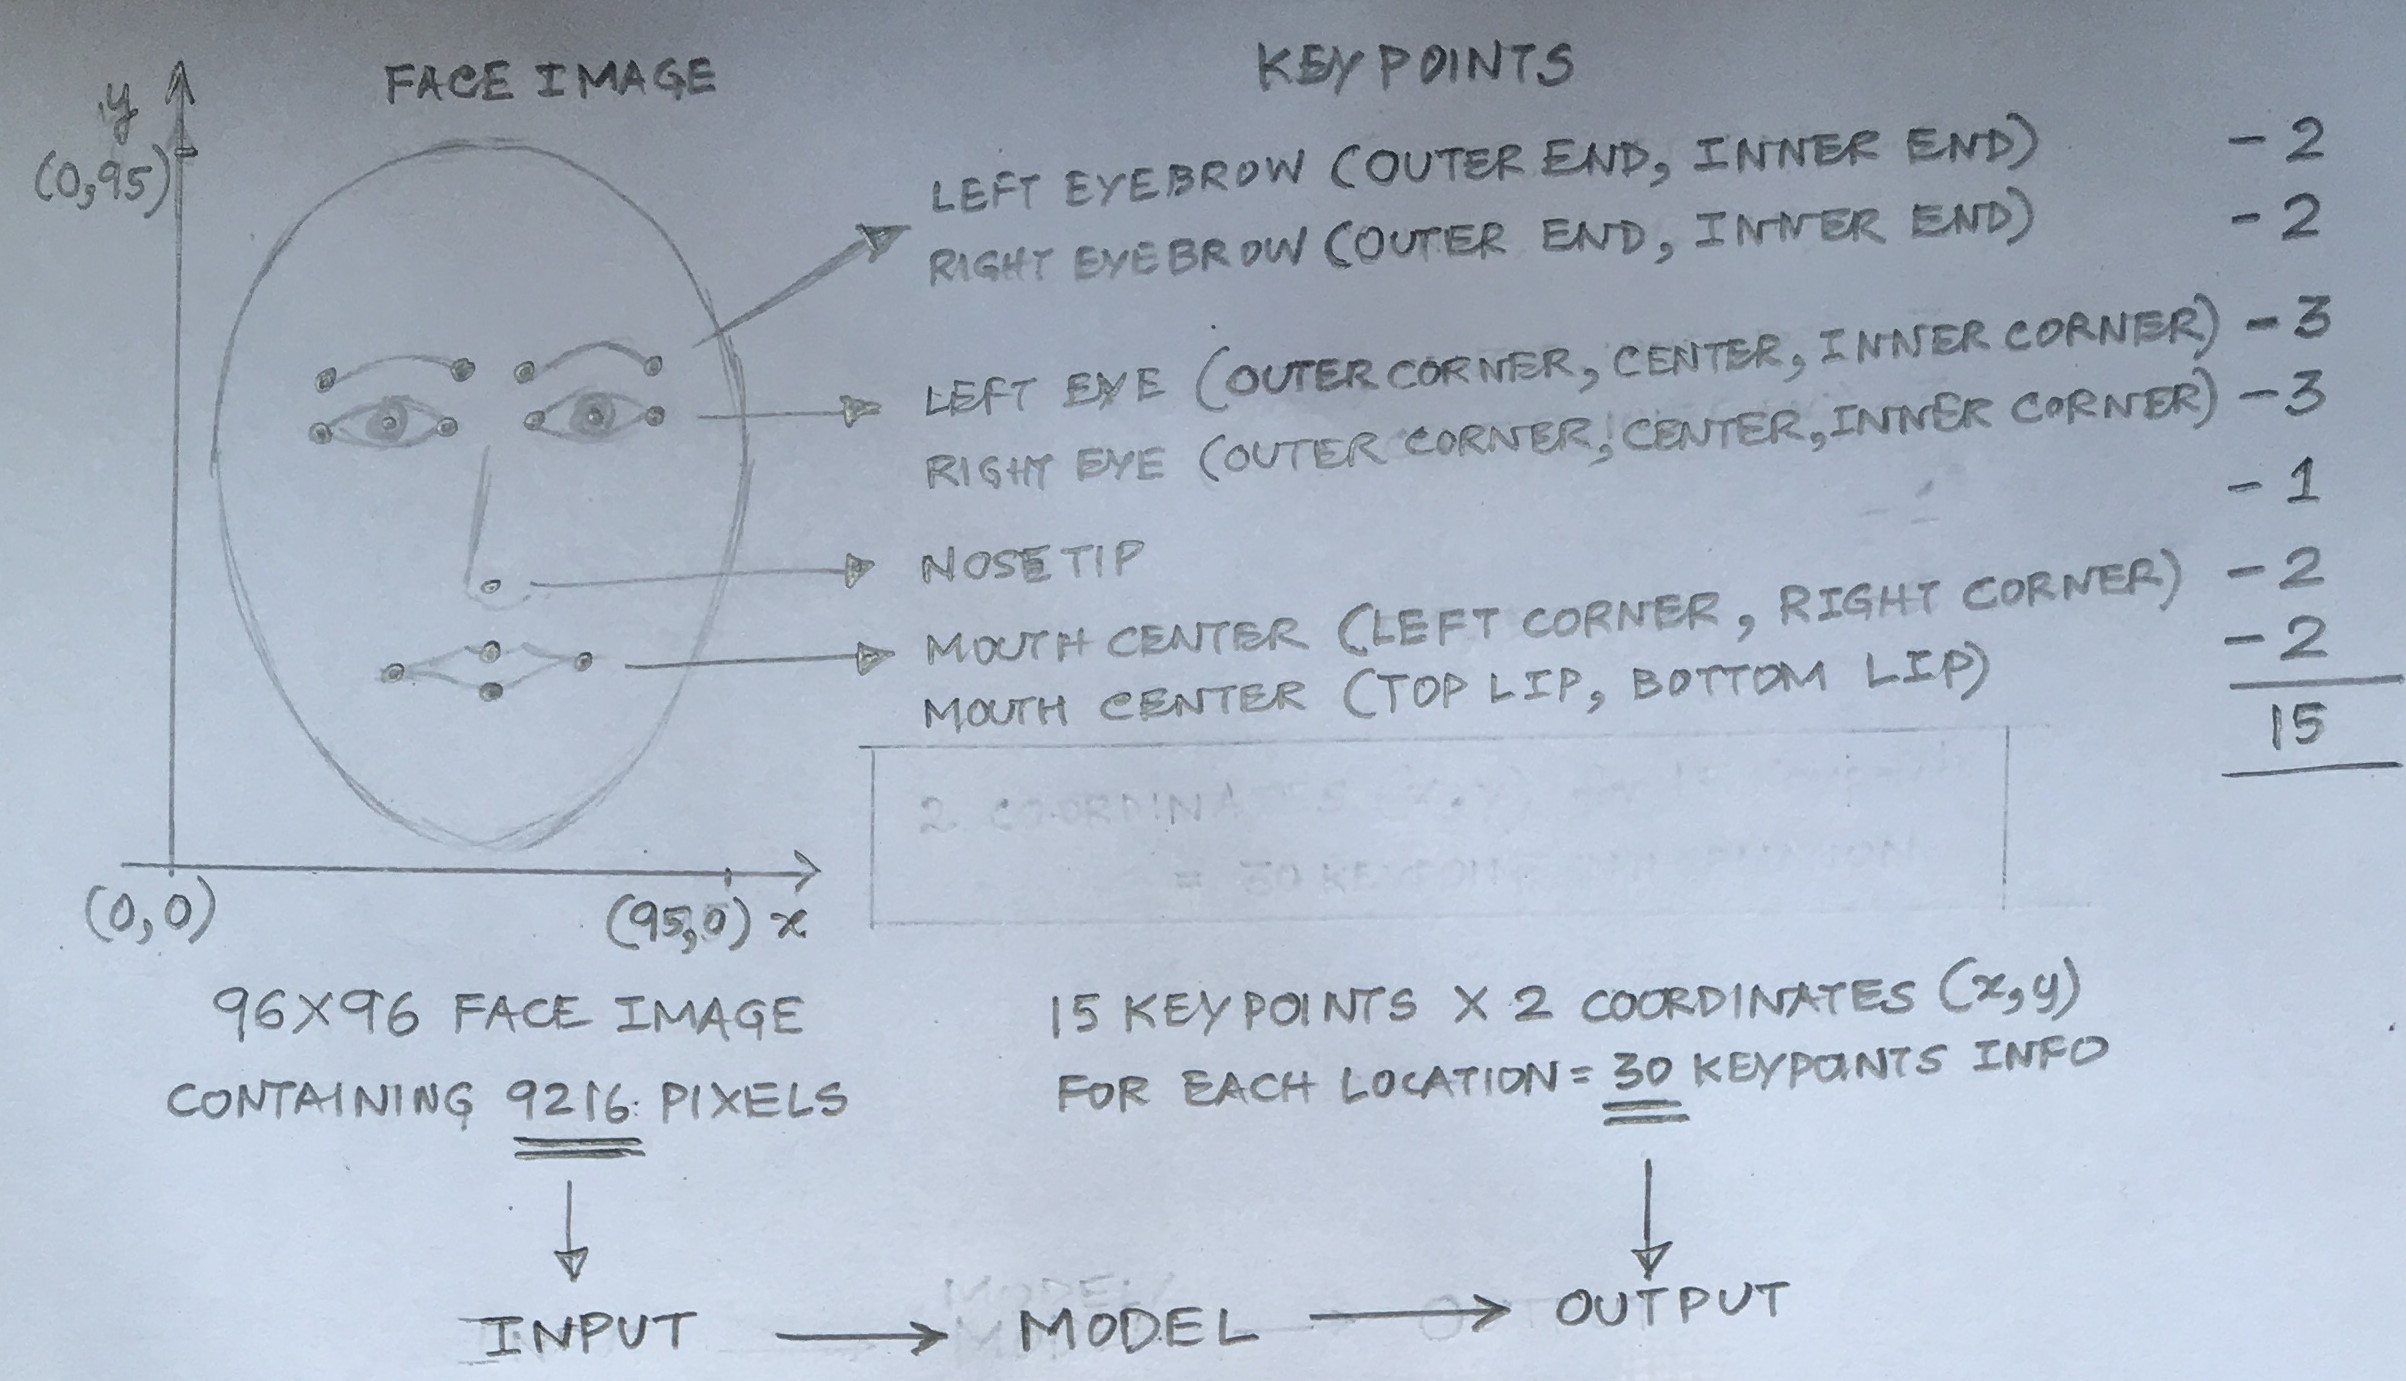 FACE IMAGE
KEYPOINTS
y
(0,95)
LEFT EYEBROW (OUTER END, INNER END) - 2
RIGHT EYEBROW (OUTER END, INNER END) - 2
LEFT EYE (OUTER CORNER, CENTER, INNER CORNER) - 3
RIGHT EYE (OUTER CORNER, CENTER, INNER CORNER) - 3
- 1
NOSE TIP
MOUTH CENTER (LEFT CORNER, RIGHT CORNER) - 2
MOUTH CENTER (TOP LIP, BOTTOM LIP) - 2
15
2 COORDINATES
= 30 KEYPOINT
(0,0)
(95,0) x
96X96 FACE IMAGE
CONTAINING 9216 PIXELS
15 KEYPOINTS X 2 COORDINATES (x,y)
FOR EACH LOCATION = 30 KEYPOINTS INFO
INPUT
MODEL
OUTPUT